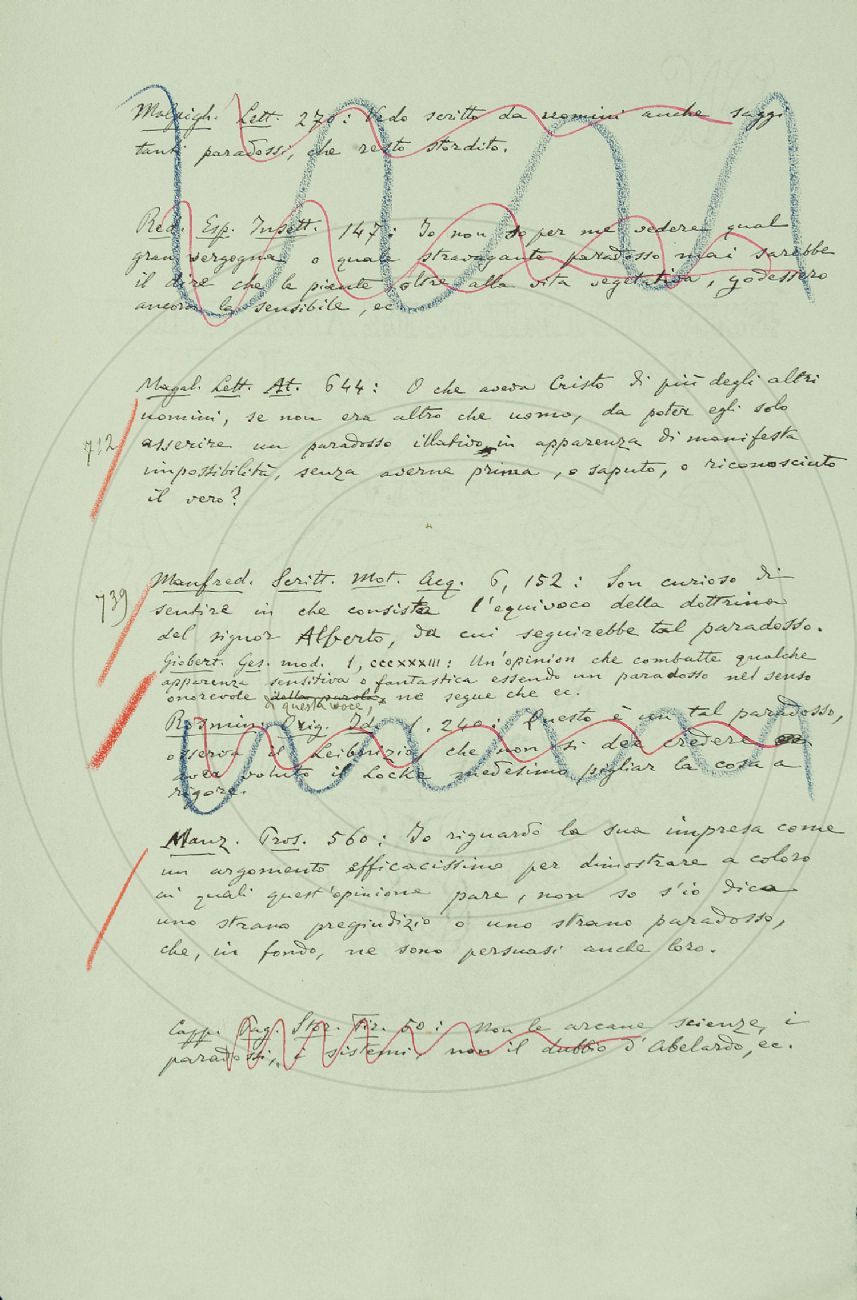 Malpigh. Lett. 270: Vedo scritto da uomini anche saggi
tanti paradossi, che resto stordito.
Red. Esp. Insett. 147: Io non so per me vedere qual
gran vergogna o quale stravagante paradosso mai sarebbe
il dire che le piante, oltre alla vita vegetativa, godessero
ancora la sensibile, ec.
Magal. Lett. At. 644: O che aveva Cristo di più degli altri
712 uomini, se non era altro che uomo, da poter egli solo
asserire un paradosso illativo in apparenza di manifesta
impossibilità, senza averne prima, o saputo, o riconosciuto
il vero?
739 Manfred. Scritt. Mot. Acq. 6, 152: Son curioso di
sentire in che consista l'equivoco della dottrina
del signor Alberto, da cui seguirebbe tal paradosso.
Giobert. Ges. mod. 1, CCCXXXIII: Un'opinion che combatte qualche
apparenza sensitiva o fantastica essendo un paradosso nel senso
onorevole della parola, di questa voce, ne segue che ec.
Rosmin. Orig. Id. 1. 240: Questo è un tal paradosso,
osserva il Leibnizio che non si dee credere
aver voluto il Locke medesimo pigliar la cosa a
rigore.
Manz. Pros. 560: Io riguardo la sua impresa come
un argomento efficacissimo per dimostrare a coloro
ai quali quest'opinione pare, non so s'io dica
uno strano pregiudizio o uno strano paradosso,
che, in fondo, ne sono persuasi anche loro.
Capp. Pag. Stor. Fir. 50: Non le arcane scienze, i
paradossi, i sistemi, non il dubbio d'Abelardo, ec.